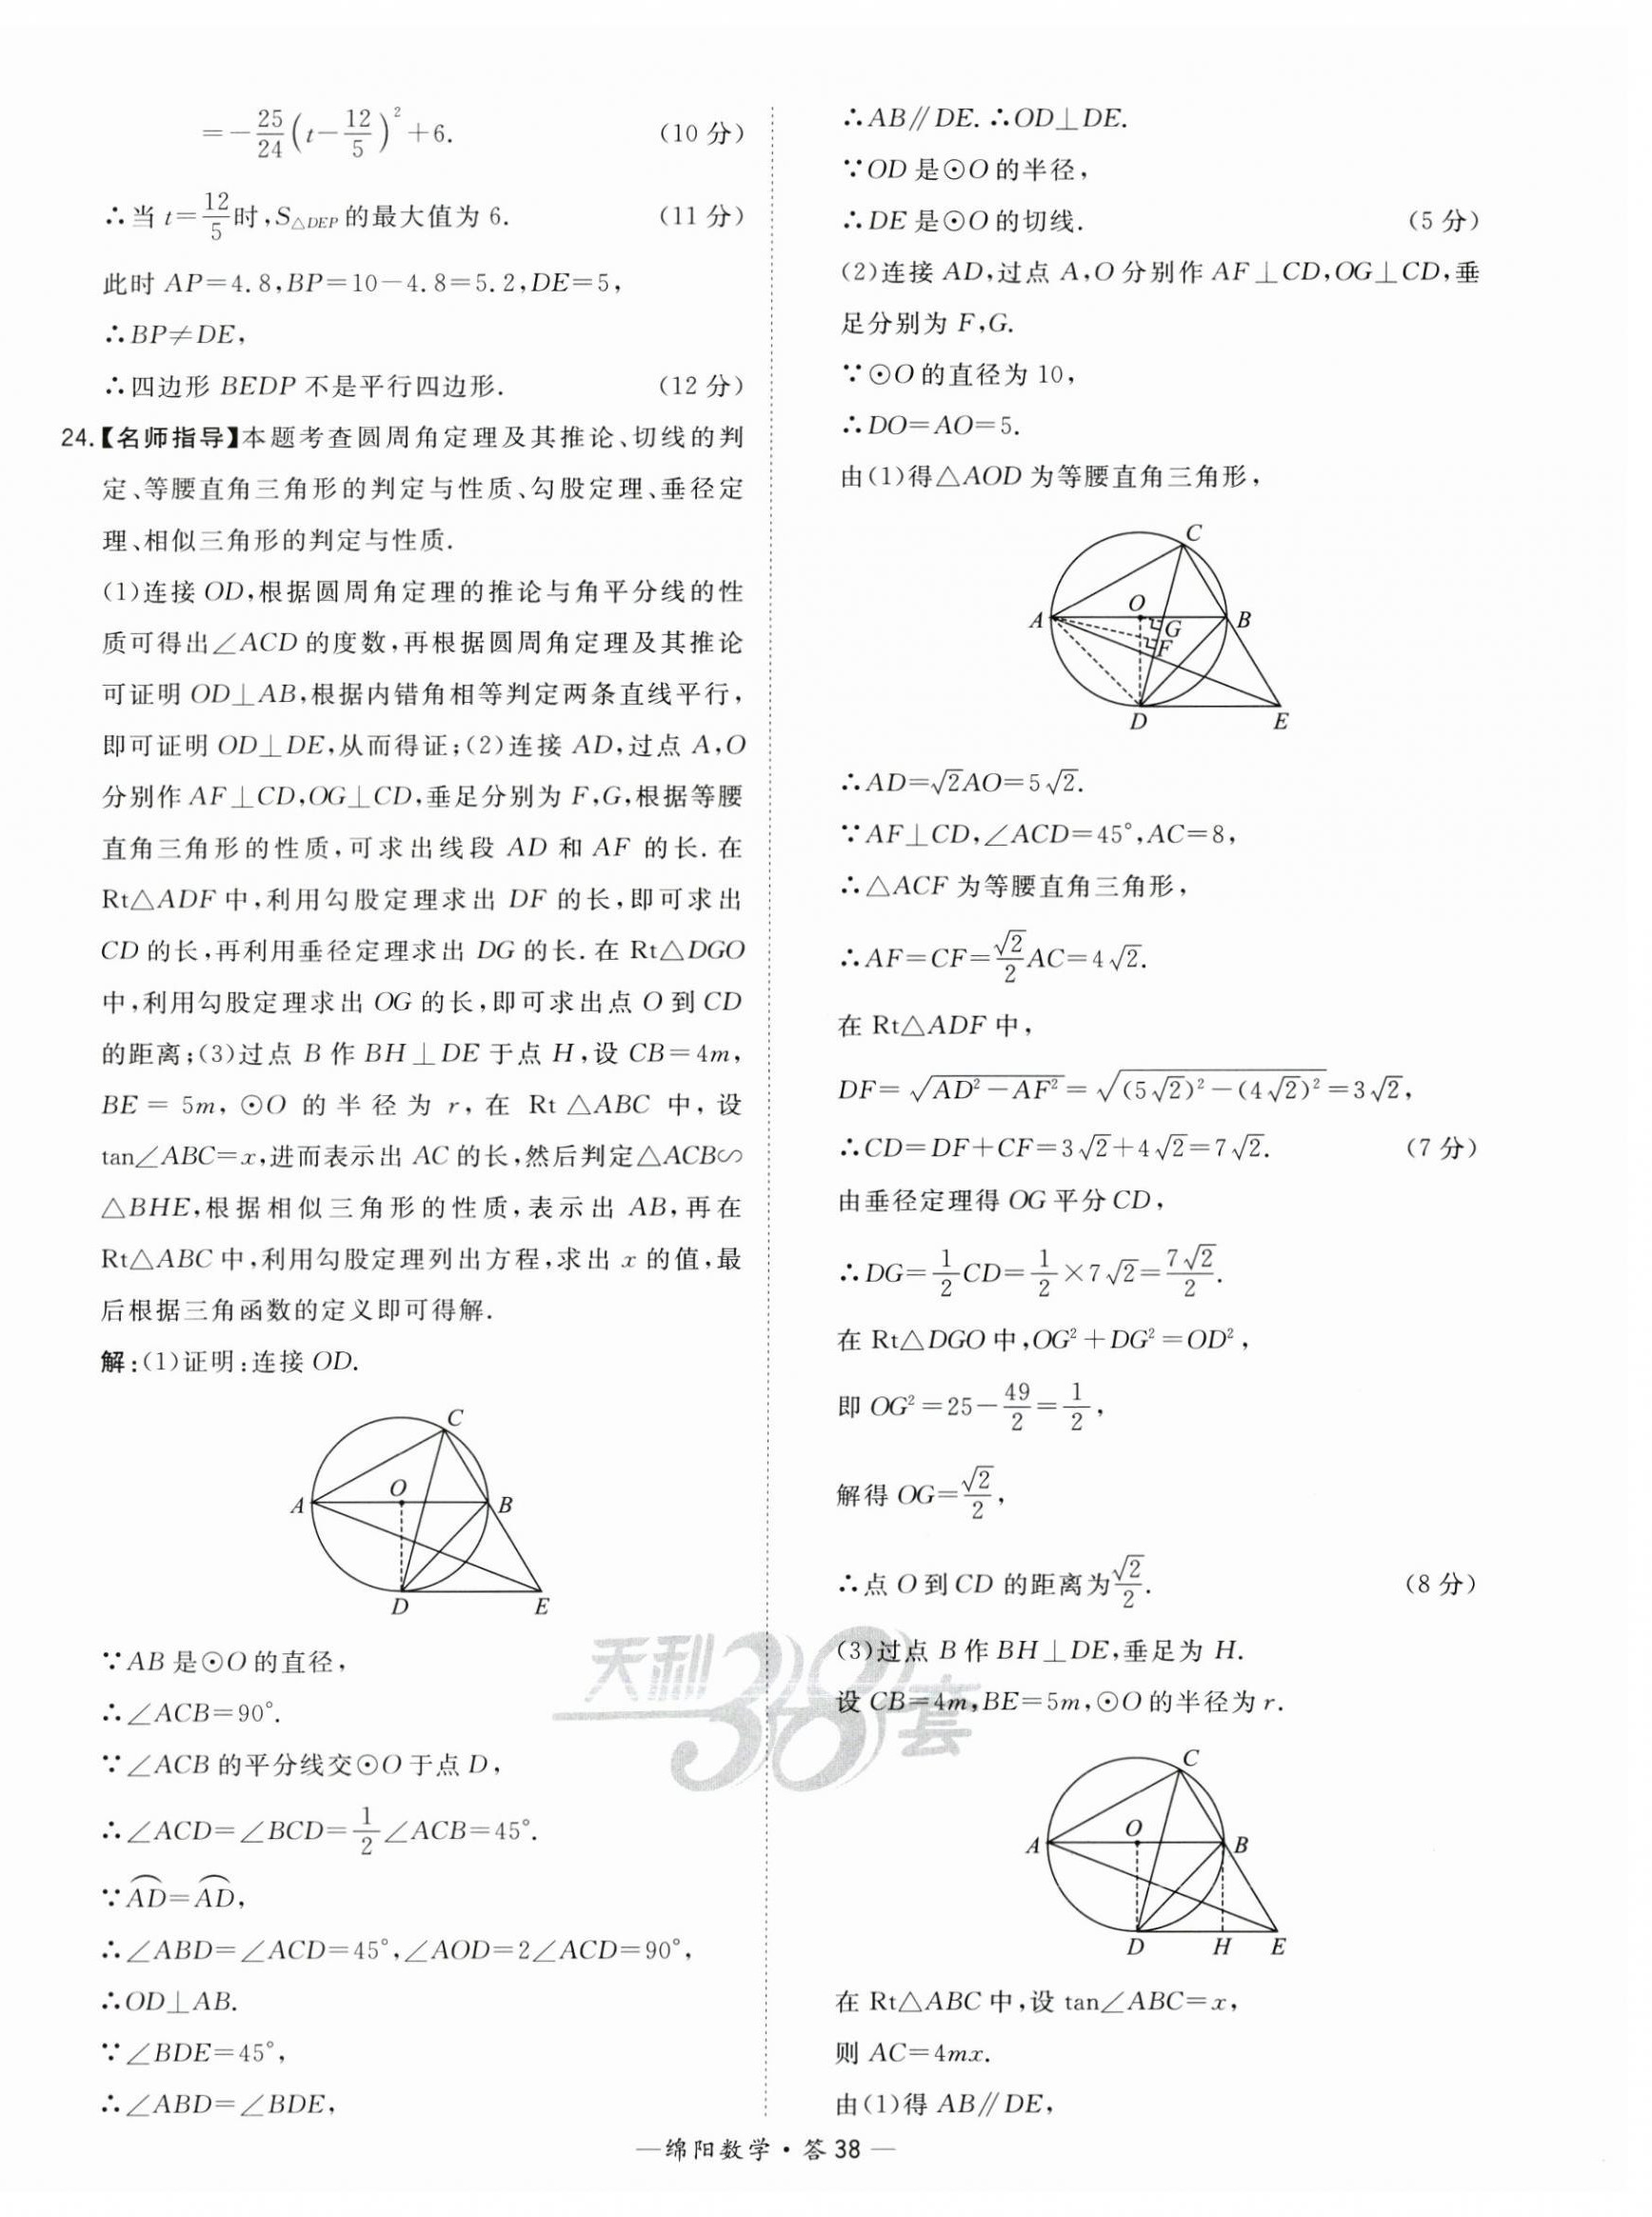 =-\frac{25}{24}(t-\frac{12}{5})²+6. (10 分)
∴当 t=\frac{12}{5}时,S△DEP的最大值为 6. (11 分)
此时 AP=4.8,BP=10-4.8=5.2,DE=5,
∴BP≠DE,
∴四边形 BEDP 不是平行四边形. (12 分)
24.【名师指导】本题考查圆周角定理及其推论、切线的判
定、等腰直角三角形的判定与性质、勾股定理、垂径定
理、相似三角形的判定与性质.
(1)连接 OD,根据圆周角定理的推论与角平分线的性
质可得出∠ACD 的度数,再根据圆周角定理及其推论
可证明 OD⊥AB,根据内错角相等判定两条直线平行,
即可证明 OD⊥DE,从而得证;(2)连接 AD,过点 A,O
分别作 AF⊥CD,OG⊥CD,垂足分别为 F,G,根据等腰
直角三角形的性质,可求出线段 AD 和 AF 的长.在
Rt△ADF 中,利用勾股定理求出 DF 的长,即可求出
CD 的长,再利用垂径定理求出 DG 的长.在 Rt△DGO
中,利用勾股定理求出 OG 的长,即可求出点 O 到 CD
的距离;(3)过点 B 作 BH⊥DE 于点 H,设 CB=4m,
BE=5m,⊙O 的半径为 r,在 Rt△ABC 中,设
tan∠ABC=x,进而表示出 AC 的长,然后判定△ACB∽
△BHE,根据相似三角形的性质,表示出 AB,再在
Rt△ABC 中,利用勾股定理列出方程,求出 x 的值,最
后根据三角函数的定义即可得解.
解:(1)证明:连接 OD.
C
O
A
B
D
E
∵AB 是⊙O 的直径,
∴∠ACB=90°.
∵∠ACB 的平分线交⊙O 于点 D,
∴∠ACD=∠BCD=\frac{1}{2}∠ACB=45°.
∵\overset{\frown}{AD}=\overset{\frown}{AD},
∴∠ABD=∠ACD=45°,∠AOD=2∠ACD=90°,
∴OD⊥AB.
∵∠BDE=45°,
∴∠ABD=∠BDE,
∴AB∥DE.∴OD⊥DE.
∵OD 是⊙O 的半径,
∴DE 是⊙O 的切线. (5 分)
(2)连接 AD,过点 A,O 分别作 AF⊥CD,OG⊥CD,垂
足分别为 F,G.
∵⊙O 的直径为 10,
∴DO=AO=5.
由(1)得△AOD 为等腰直角三角形,
C
O
A
G
B
F
D
E
∴AD=√2AO=5√2.
∵AF⊥CD,∠ACD=45°,AC=8,
∴△ACF 为等腰直角三角形,
∴AF=CF=\frac{√2}{2}AC=4√2.
在 Rt△ADF 中,
DF=\sqrt{AD²-AF²}=\sqrt{(5√2)²-(4√2)²}=3√2,
∴CD=DF+CF=3√2+4√2=7√2. (7 分)
由垂径定理得 OG 平分 CD,
∴DG=\frac{1}{2}CD=\frac{1}{2}×7√2=\frac{7√2}{2}.
在 Rt△DGO 中,OG²+DG²=OD²,
即 OG²=25-\frac{49}{2}=\frac{1}{2},
解得 OG=\frac{√2}{2},
∴点 O 到 CD 的距离为\frac{√2}{2}. (8 分)
(3)过点 B 作 BH⊥DE,垂足为 H.
设 CB=4m,BE=5m,⊙O 的半径为 r.
C
O
A
B
D
H
E
在 Rt△ABC 中,设 tan∠ABC=x,
则 AC=4mx.
由(1)得 AB∥DE,
天利38套
—绵阳数学·答38—